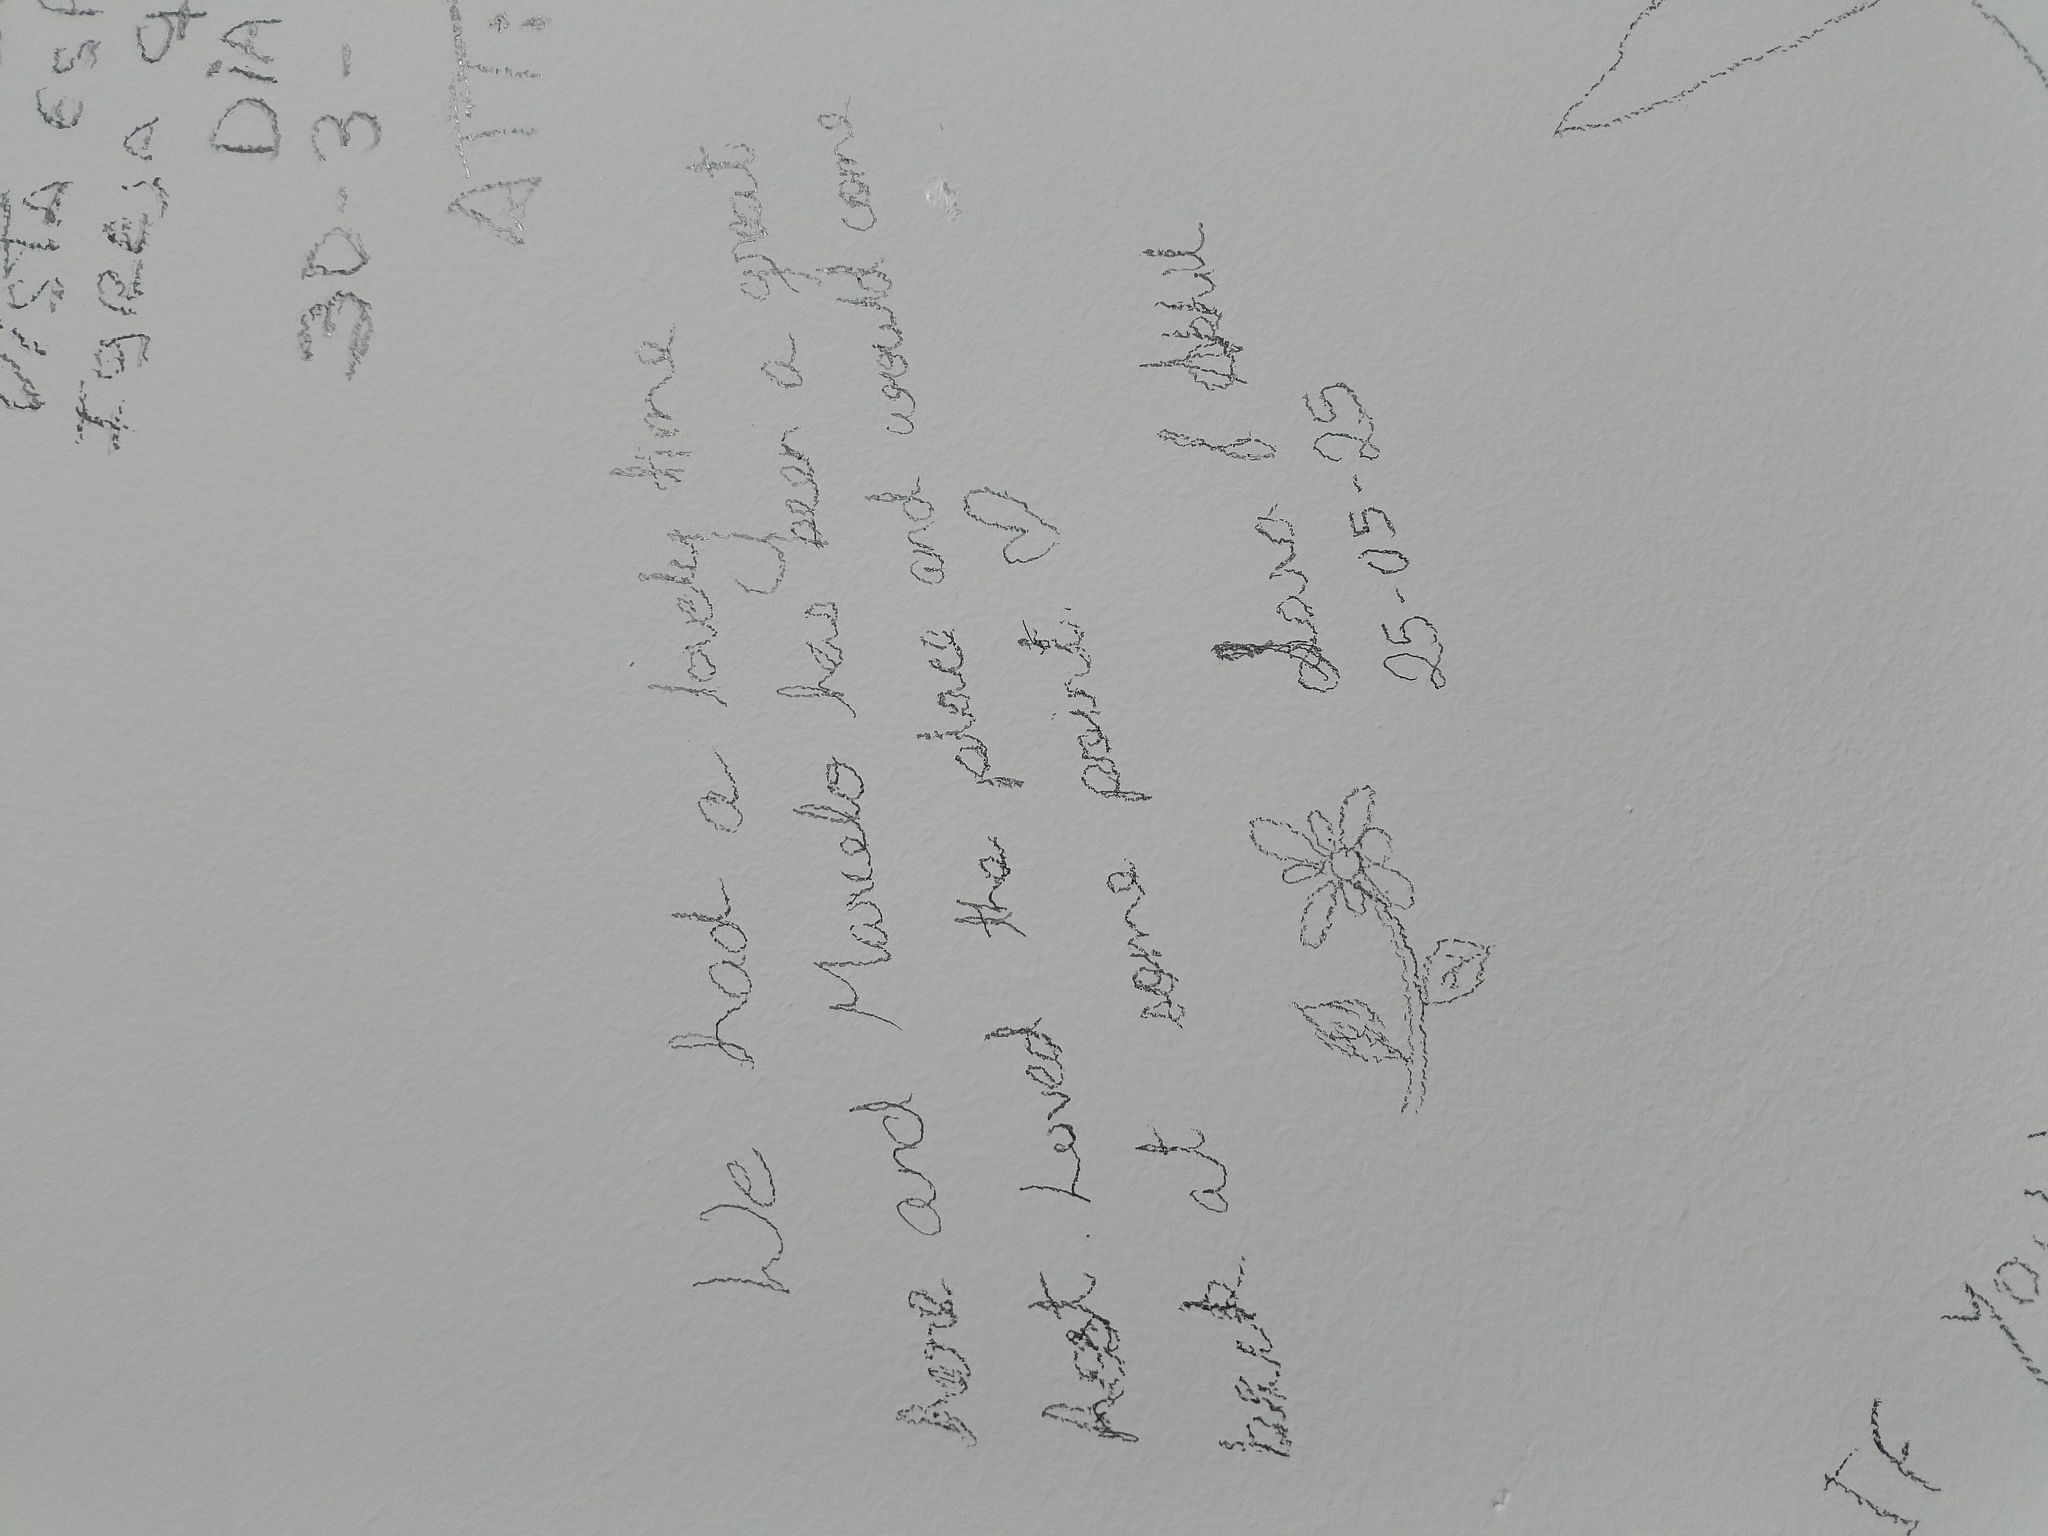 ESTA
IgReja
DiA
30-3-
ATT:
We had a lovely time
here and Marcelo has been a great
host. Loved the place and would come
back at some point. ♡
25-05-25